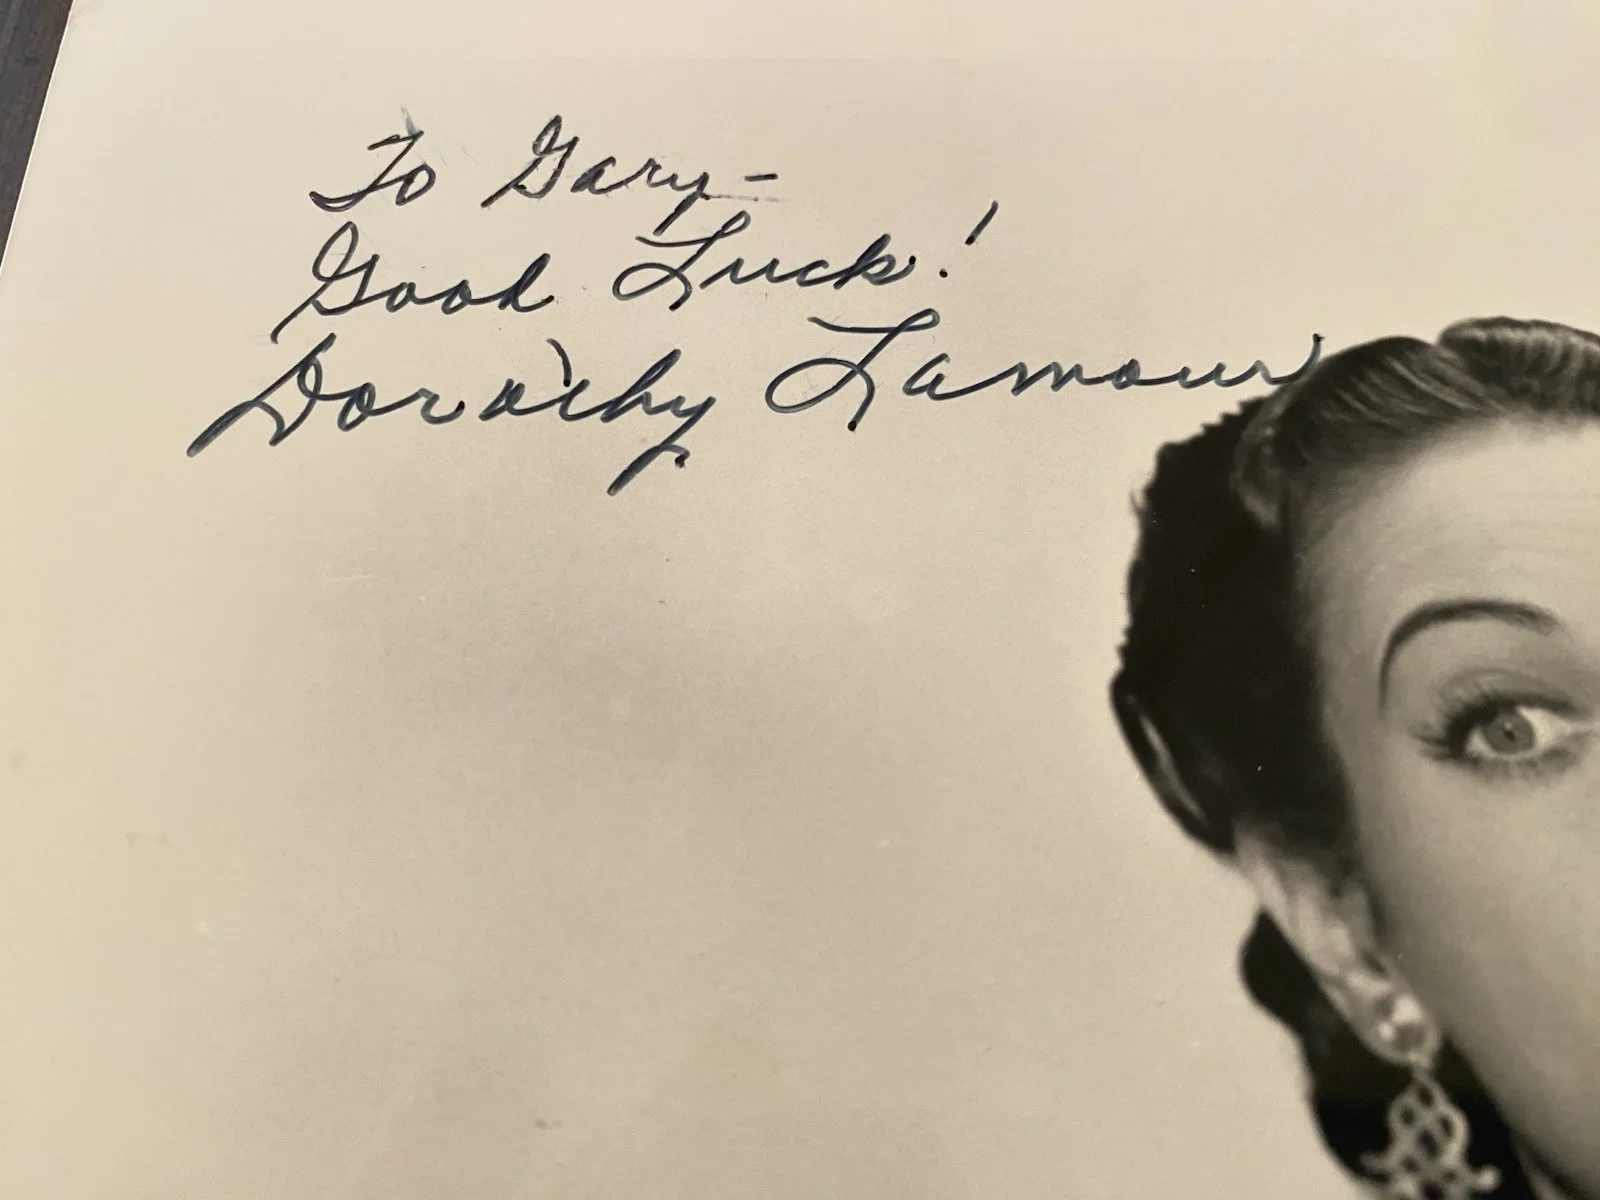 To Gary-
Good Luck!
Dorothy Lamour